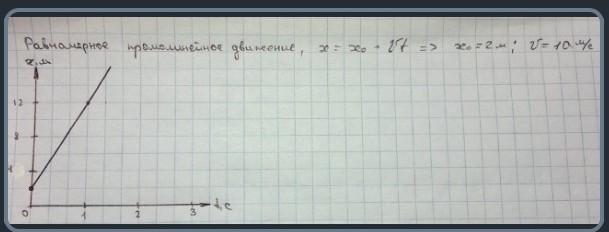 Равномерное прямолинейное движение, x = x₀ + Vt => x₀ = 2 м; V = 10 м/с
x, м
12
8
4
0 1 2 3 t, с